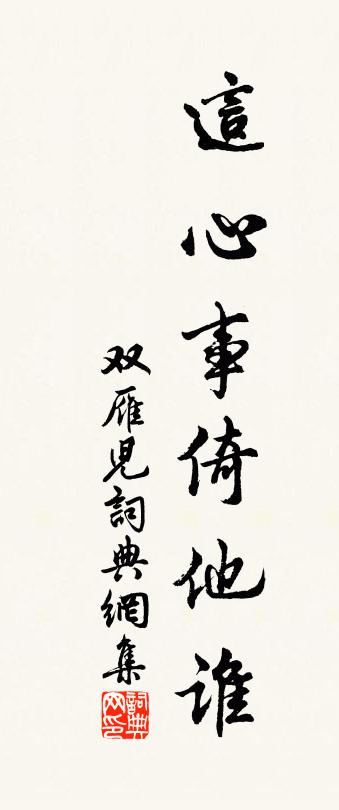 這心事倚他誰
双雁児詞典網集
詞典网印